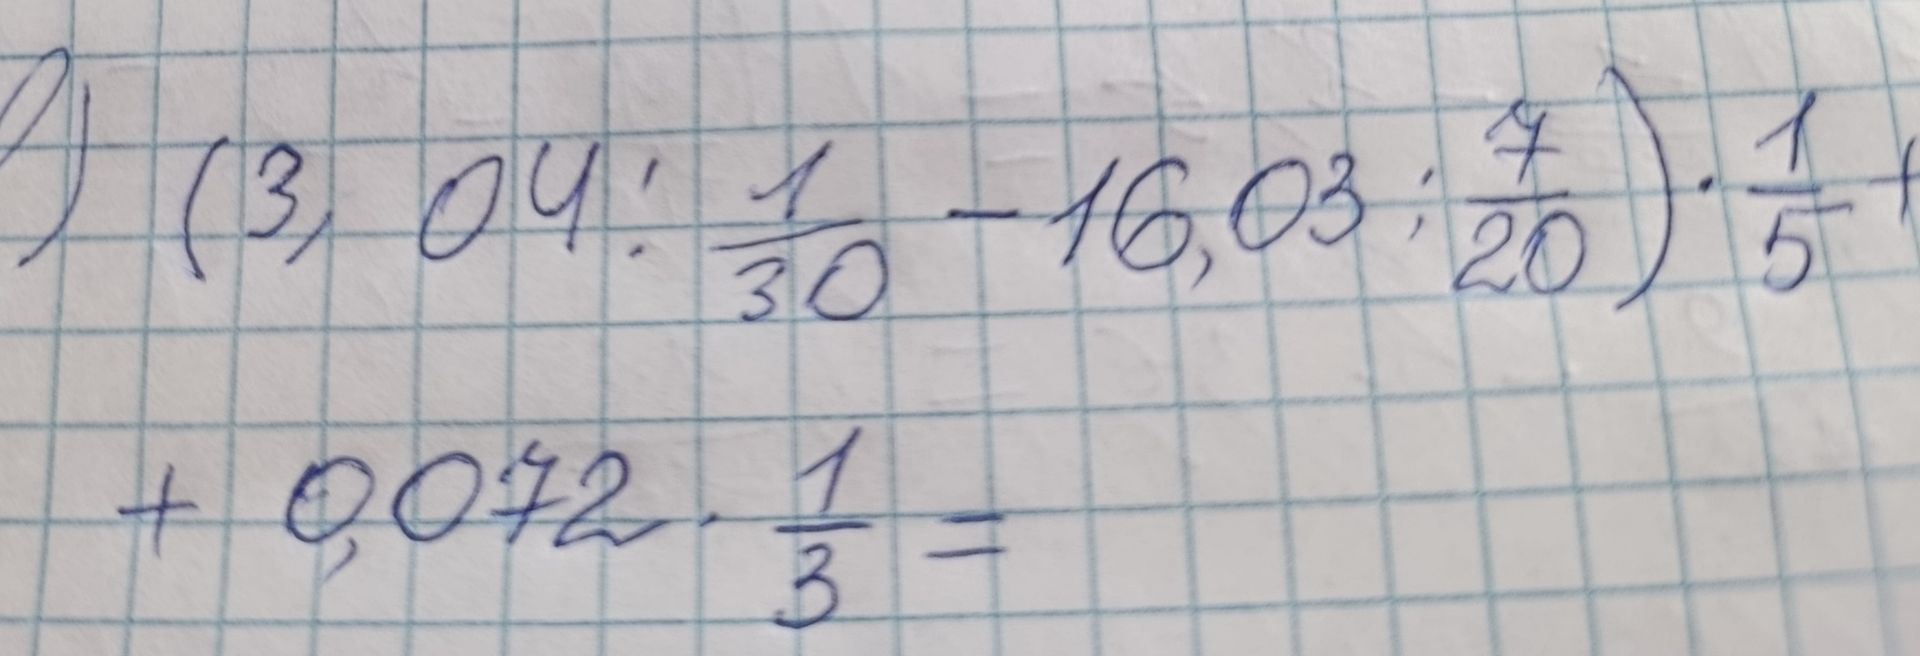 в) (3,04 : 1/30 - 16,03 : 7/20) · 1/5 +
+ 0,072 · 1/3 =